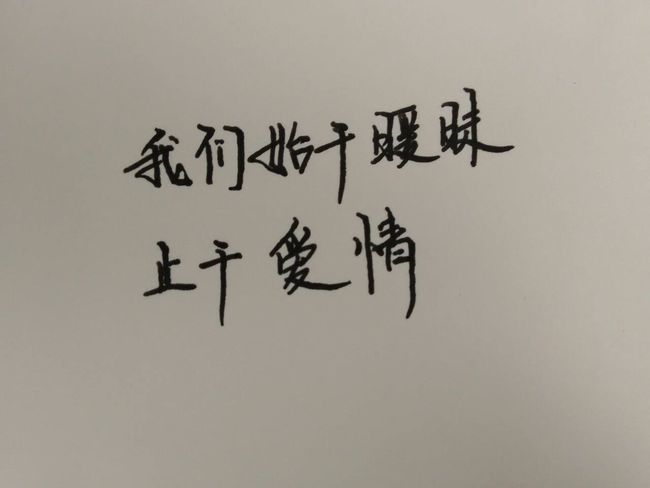 我们始于暧昧
止于爱情